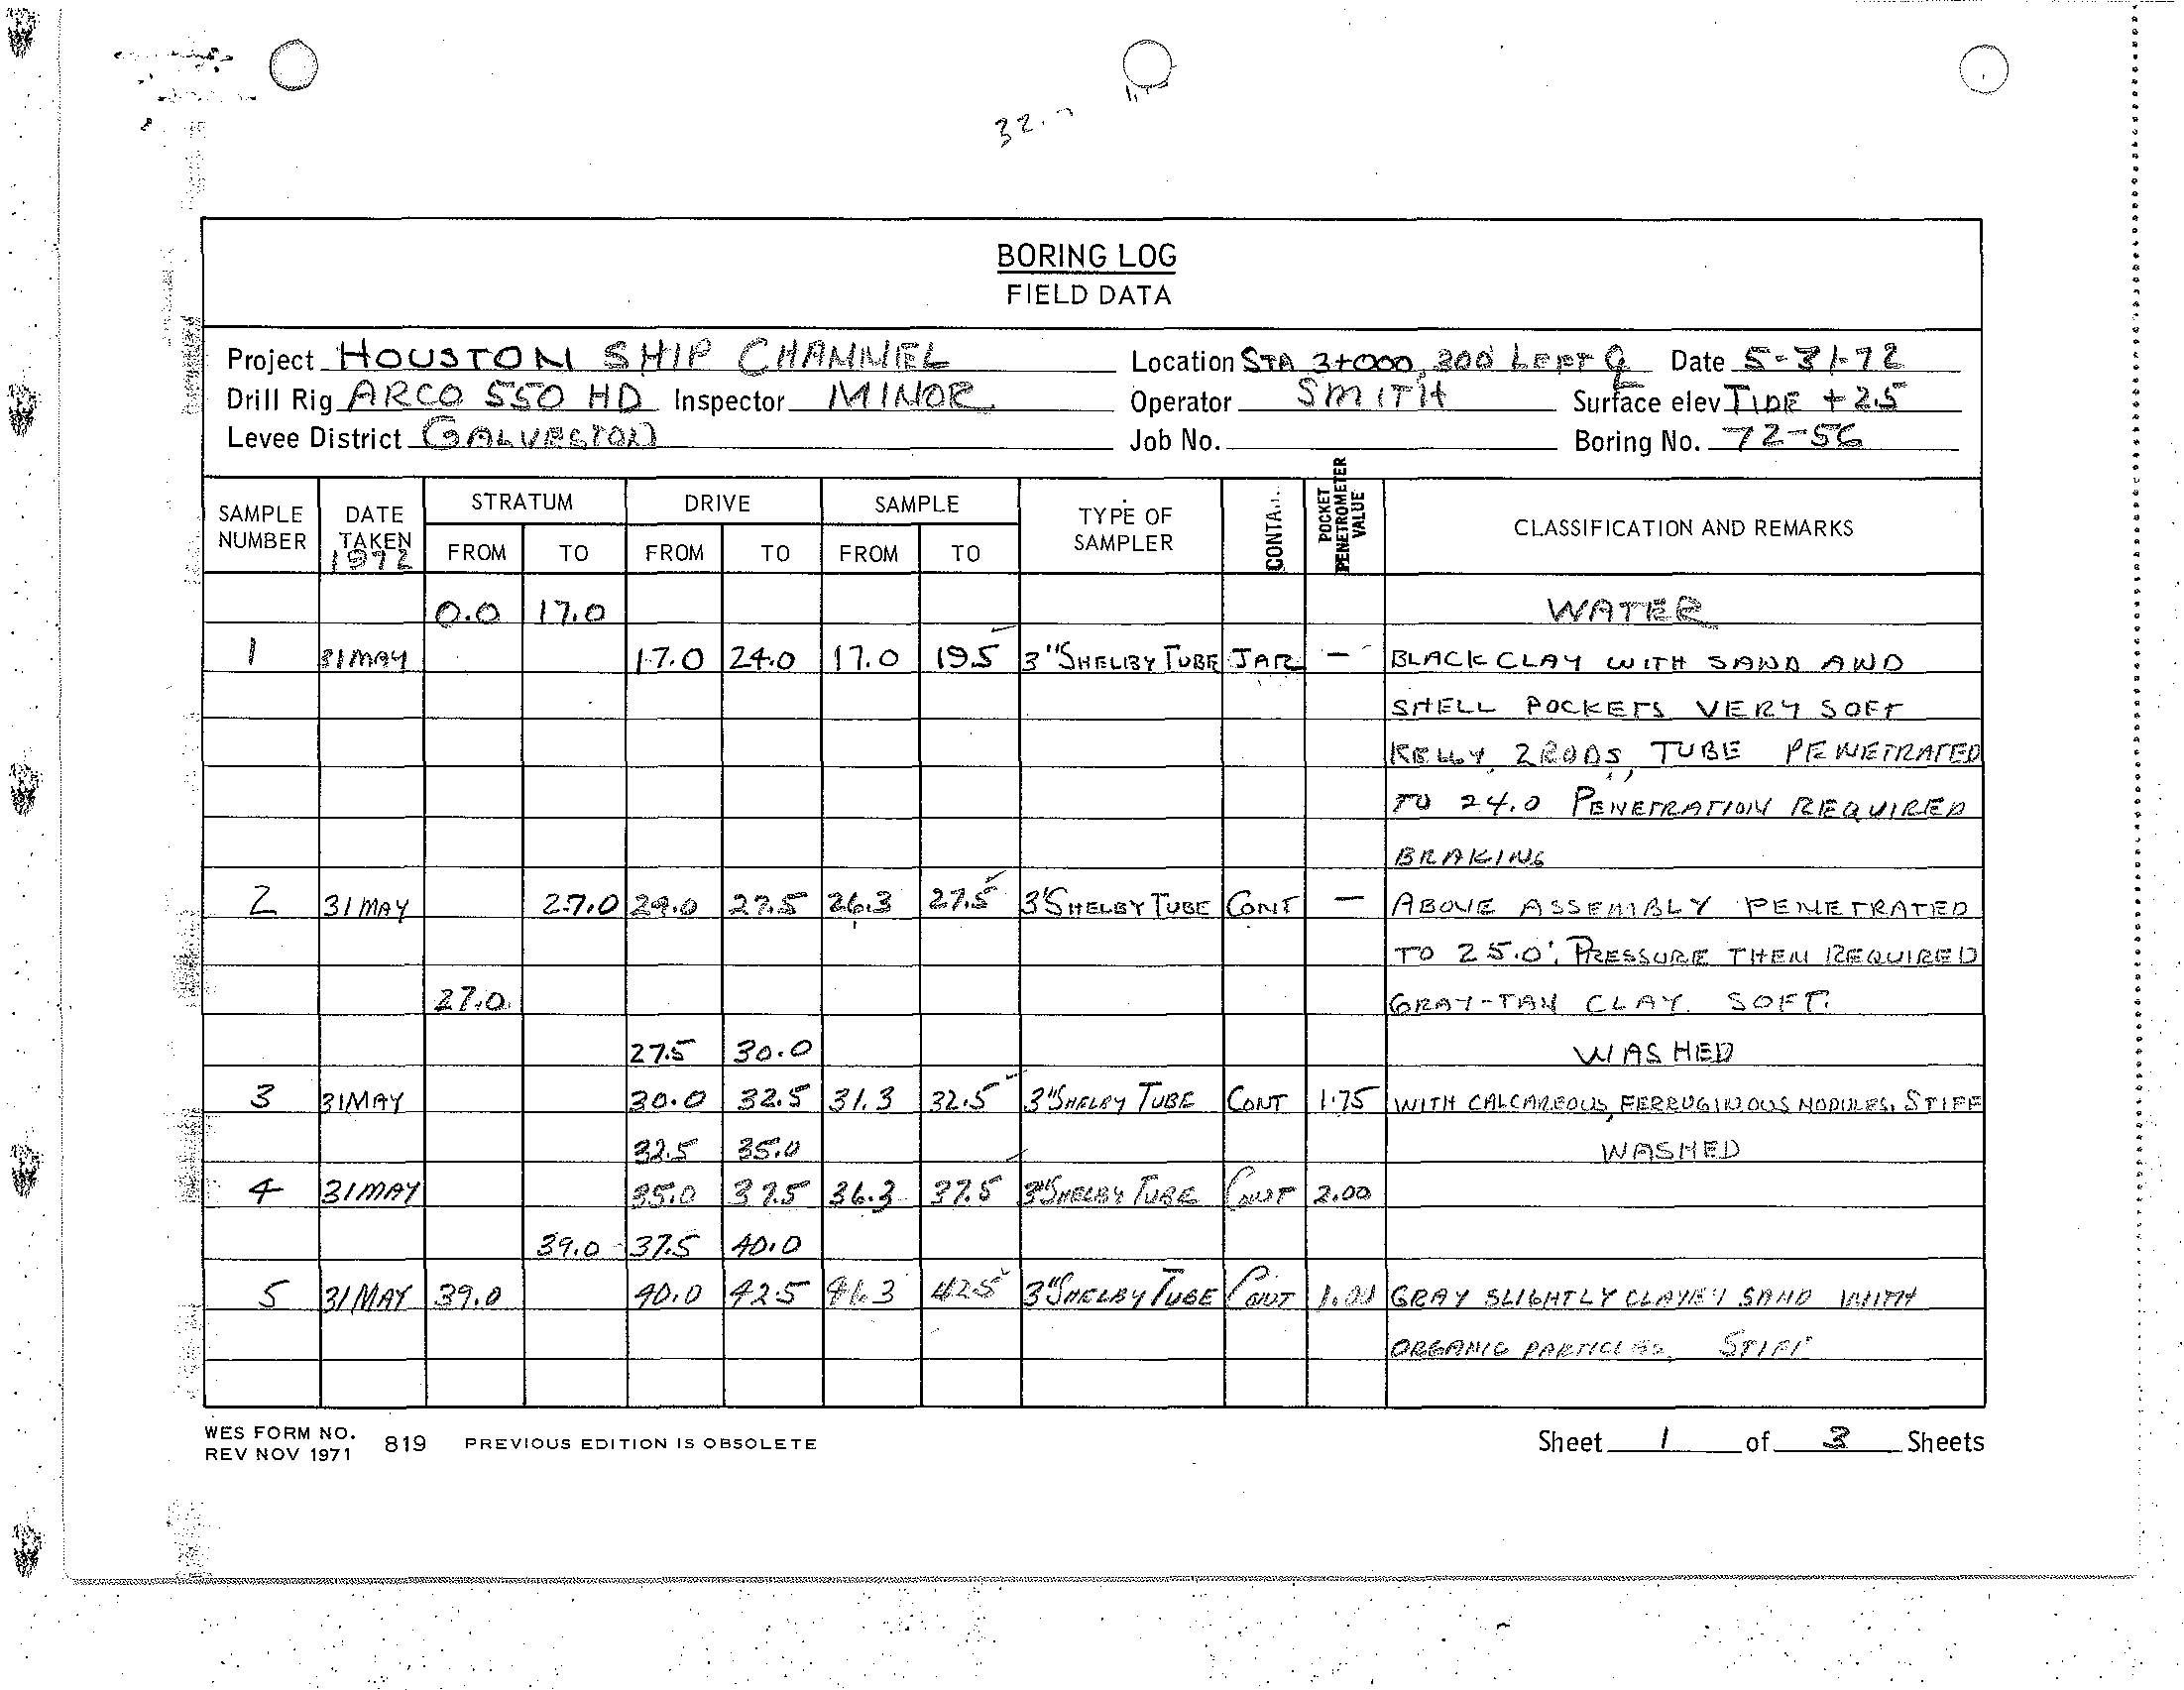 BORING LOG
FIELD DATA
Project HOUSTON SHIP CHANNEL Location STA 3+000, 300' LEFT ℄ Date 5-31-72
Drill Rig ARCO 550 HD Inspector MINOR Operator SMITH Surface elev TIDE +2.5
Levee District GALVESTON Job No. Boring No. 72-56
SAMPLE NUMBER DATE TAKEN 1972 STRATUM FROM TO DRIVE FROM TO SAMPLE FROM TO TYPE OF SAMPLER CONTA... POCKET PENETROMETER VALUE CLASSIFICATION AND REMARKS
0.0 17.0 WATER
1 31 MAY 17.0 24.0 17.0 19.5 3" SHELBY TUBE JAR - BLACK CLAY WITH SAND AND
SHELL POCKETS VERY SOFT
KELLY, 2 RODS, TUBE PENETRATED
TO 24.0 PENETRATION REQUIRED
BRAKING
2 31 MAY 27.0 27.5 26.3 27.5 3" SHELBY TUBE CONT - ABOVE ASSEMBLY PENETRATED
TO 25.0'; PRESSURE THEN REQUIRED
27.0 GRAY-TAN CLAY. SOFT.
27.5 30.0 WASHED
3 31 MAY 30.0 32.5 31.3 32.5 3" SHELBY TUBE CONT 1.75 WITH CALCAREOUS, FERRUGINOUS NODULES. STIFF
32.5 35.0 WASHED
4 31 MAY 35.0 37.5 36.3 37.5 3" SHELBY TUBE CONT 2.00
39.0 37.5 40.0
5 31 MAY 39.0 40.0 42.5 41.3 42.5 3" SHELBY TUBE CONT GRAY SLIGHTLY CLAYEY SAND WITH
ORGANIC PARTICLES. STIFF
WES FORM NO. 819 PREVIOUS EDITION IS OBSOLETE Sheet 1 of 3 Sheets
REV NOV 1971